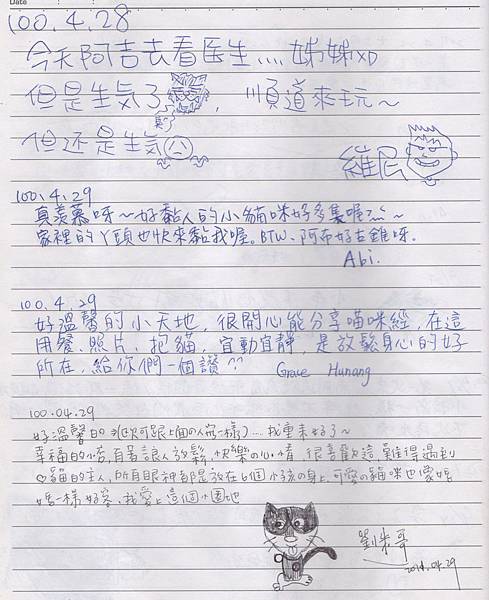 Date
100.4.28
今天阿吉去看医生....姊姊XD
但是生気了, 順道來玩~
但还是生気
維尼
100.4.29
真羨慕呀~好黏人的小貓咪好多隻喔~
家裡的丫頭也快來黏我喔。BTW、阿布好古錐呀.
Abi.
100.4.29
好溫馨的小天地, 很開心能分享喵咪經, 在這
用餐、照片、抱貓, 宜動宜靜, 是放鬆身心的好
所在, 給你們一個讚
Grace Hunang
100.04.29
好溫馨的 我重來好了~
幸福的小窩, 有著讓人放鬆, 快樂の心情, 很喜歡這, 難得遇到
貓的主人, 所有眼神都是放在6個小孩の身上, 可愛の貓咪也像媽
媽一樣 好客, 我愛上這個小園地
2011.04.29